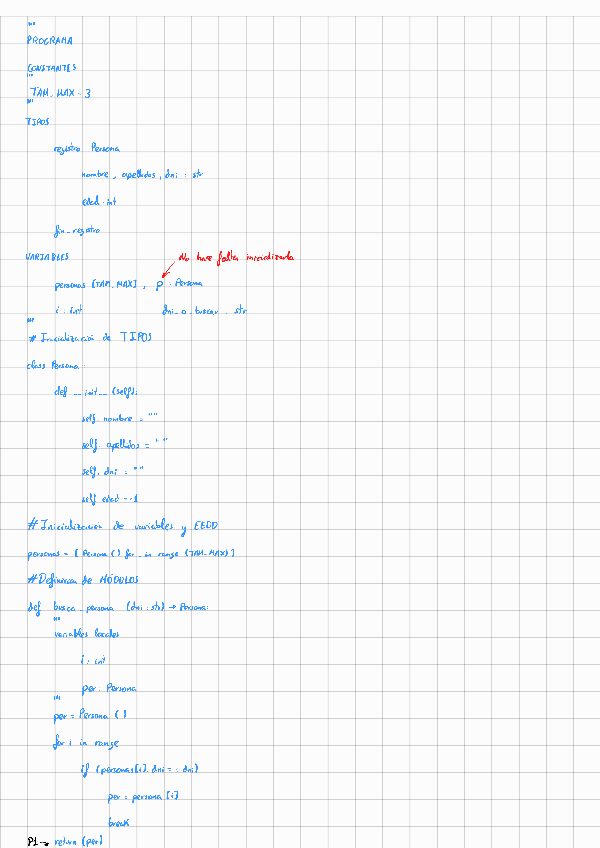 """
PROGRAMA
CONSTANTES
"""
TAM_MAX = 3
"""
TIPOS
registro Persona
nombre, apellidos, dni : str
edad : int
fin_registro
VARIABLES
No hace falta inicializarla
personas [TAM_MAX], p : Persona
i : int dni_a_buscar : str
"""
# Inicialización de TIPOS
class Persona:
def __init__ (self):
self.nombre = ""
self.apellidos = ""
self.dni = ""
self.edad = -1
# Inicialización de variables y EEDD
personas = [ Persona () for _ in range (TAM_MAX) ]
# Definición de MÓDULOS
def busca_persona (dni : str) → Persona:
"""
variables locales
i : int
per : Persona
"""
per = Persona ()
for i in range
if (personas[i].dni == dni)
per = persona [i]
break
P1 → return (per)